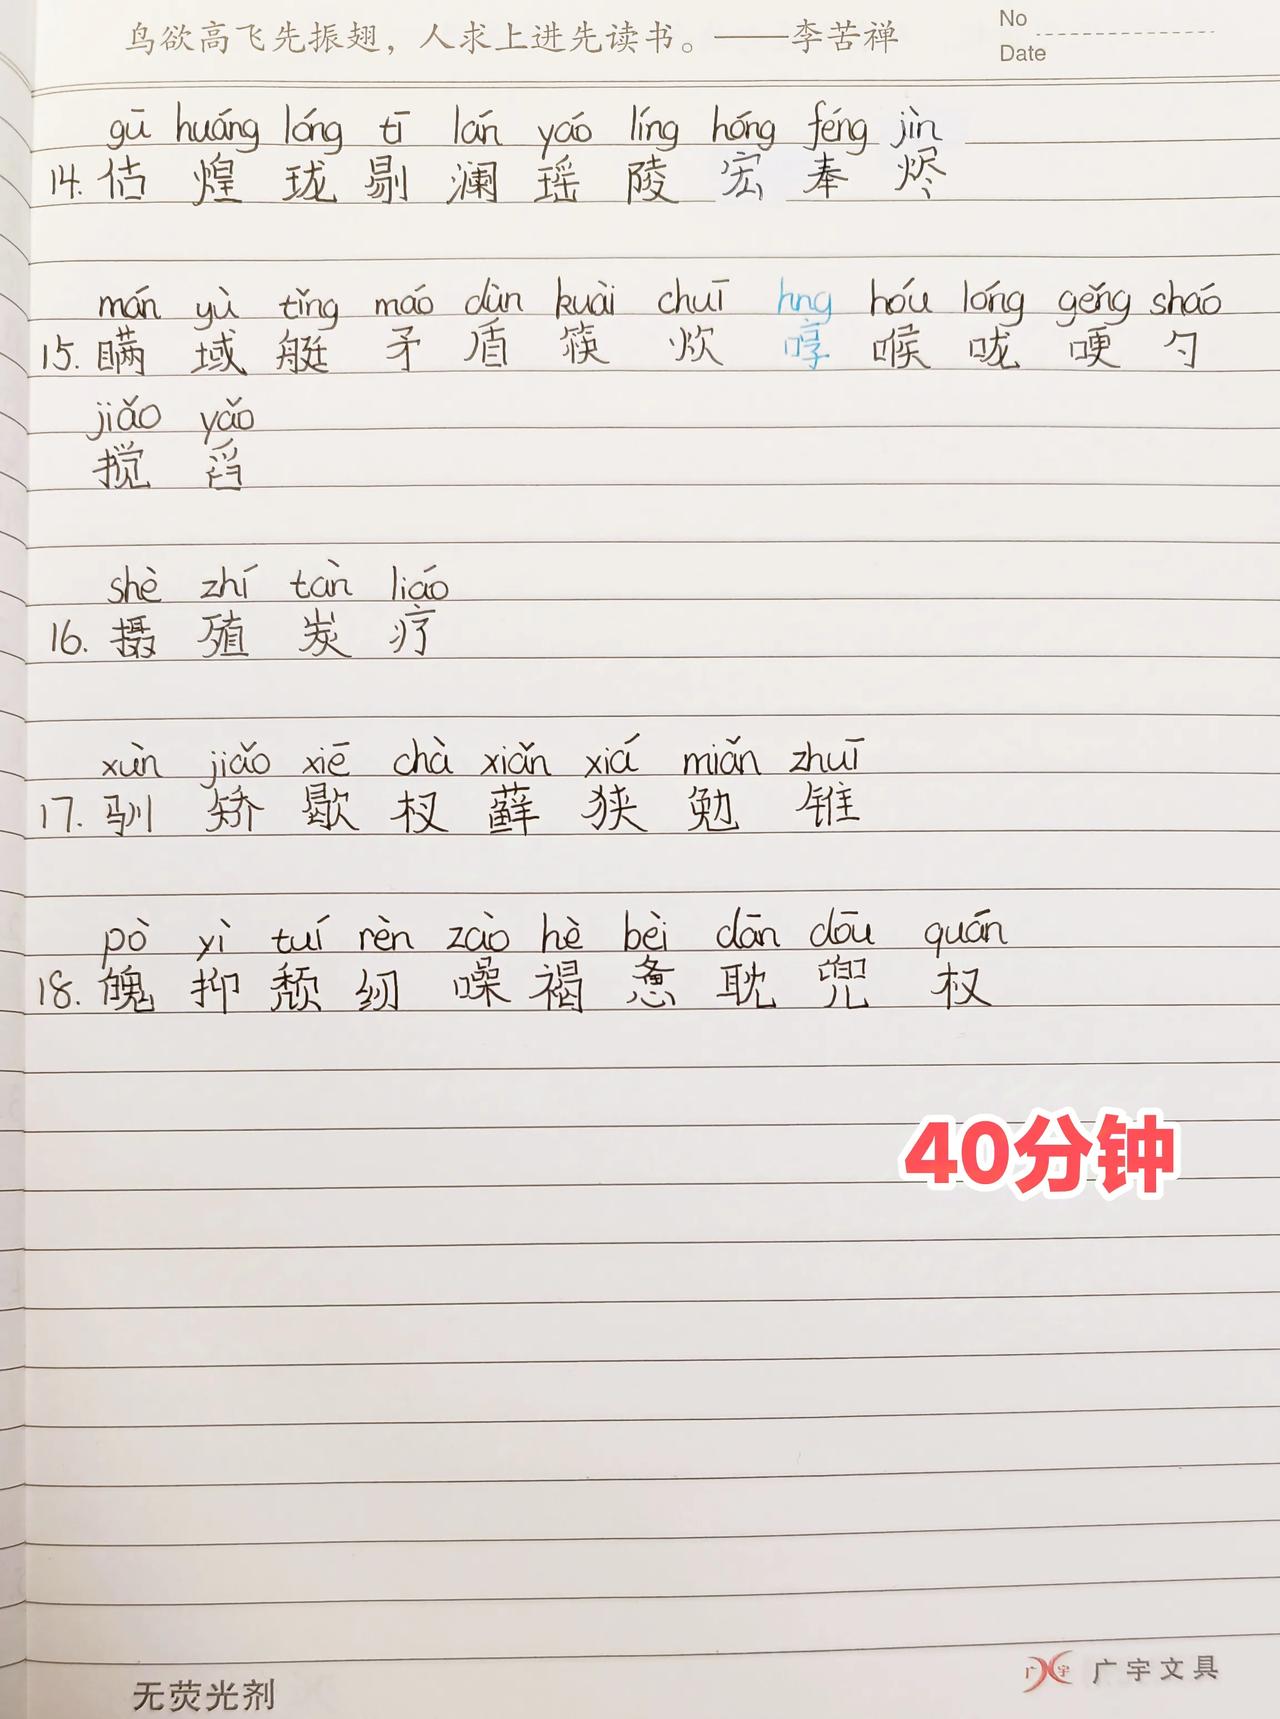 鸟欲高飞先振翅，人求上进先读书。——李苦禅
No
Date
gū huáng lóng tī lán yáo líng hóng féng jìn
14. 估 煌 珑 剔 澜 瑶 陵 宏 奉 烬
mán yù tǐng máo dùn kuài chuī hng hóu lóng gěng sháo
15. 瞒 域 艇 矛 盾 筷 炊 哼 喉 咙 哽 勺
jiǎo yǎo
搅 舀
shè zhí tàn liáo
16. 摄 殖 炭 疗
xùn jiǎo xiē chà xiǎn xiá miǎn zhuī
17. 驯 矫 歇 杈 藓 狭 勉 锥
pò yì tuí rèn zào hè bèi dān dōu quán
18. 魄 抑 颓 纫 噪 褐 惫 耽 兜 权
40分钟
无荧光剂
广宇 广宇文具